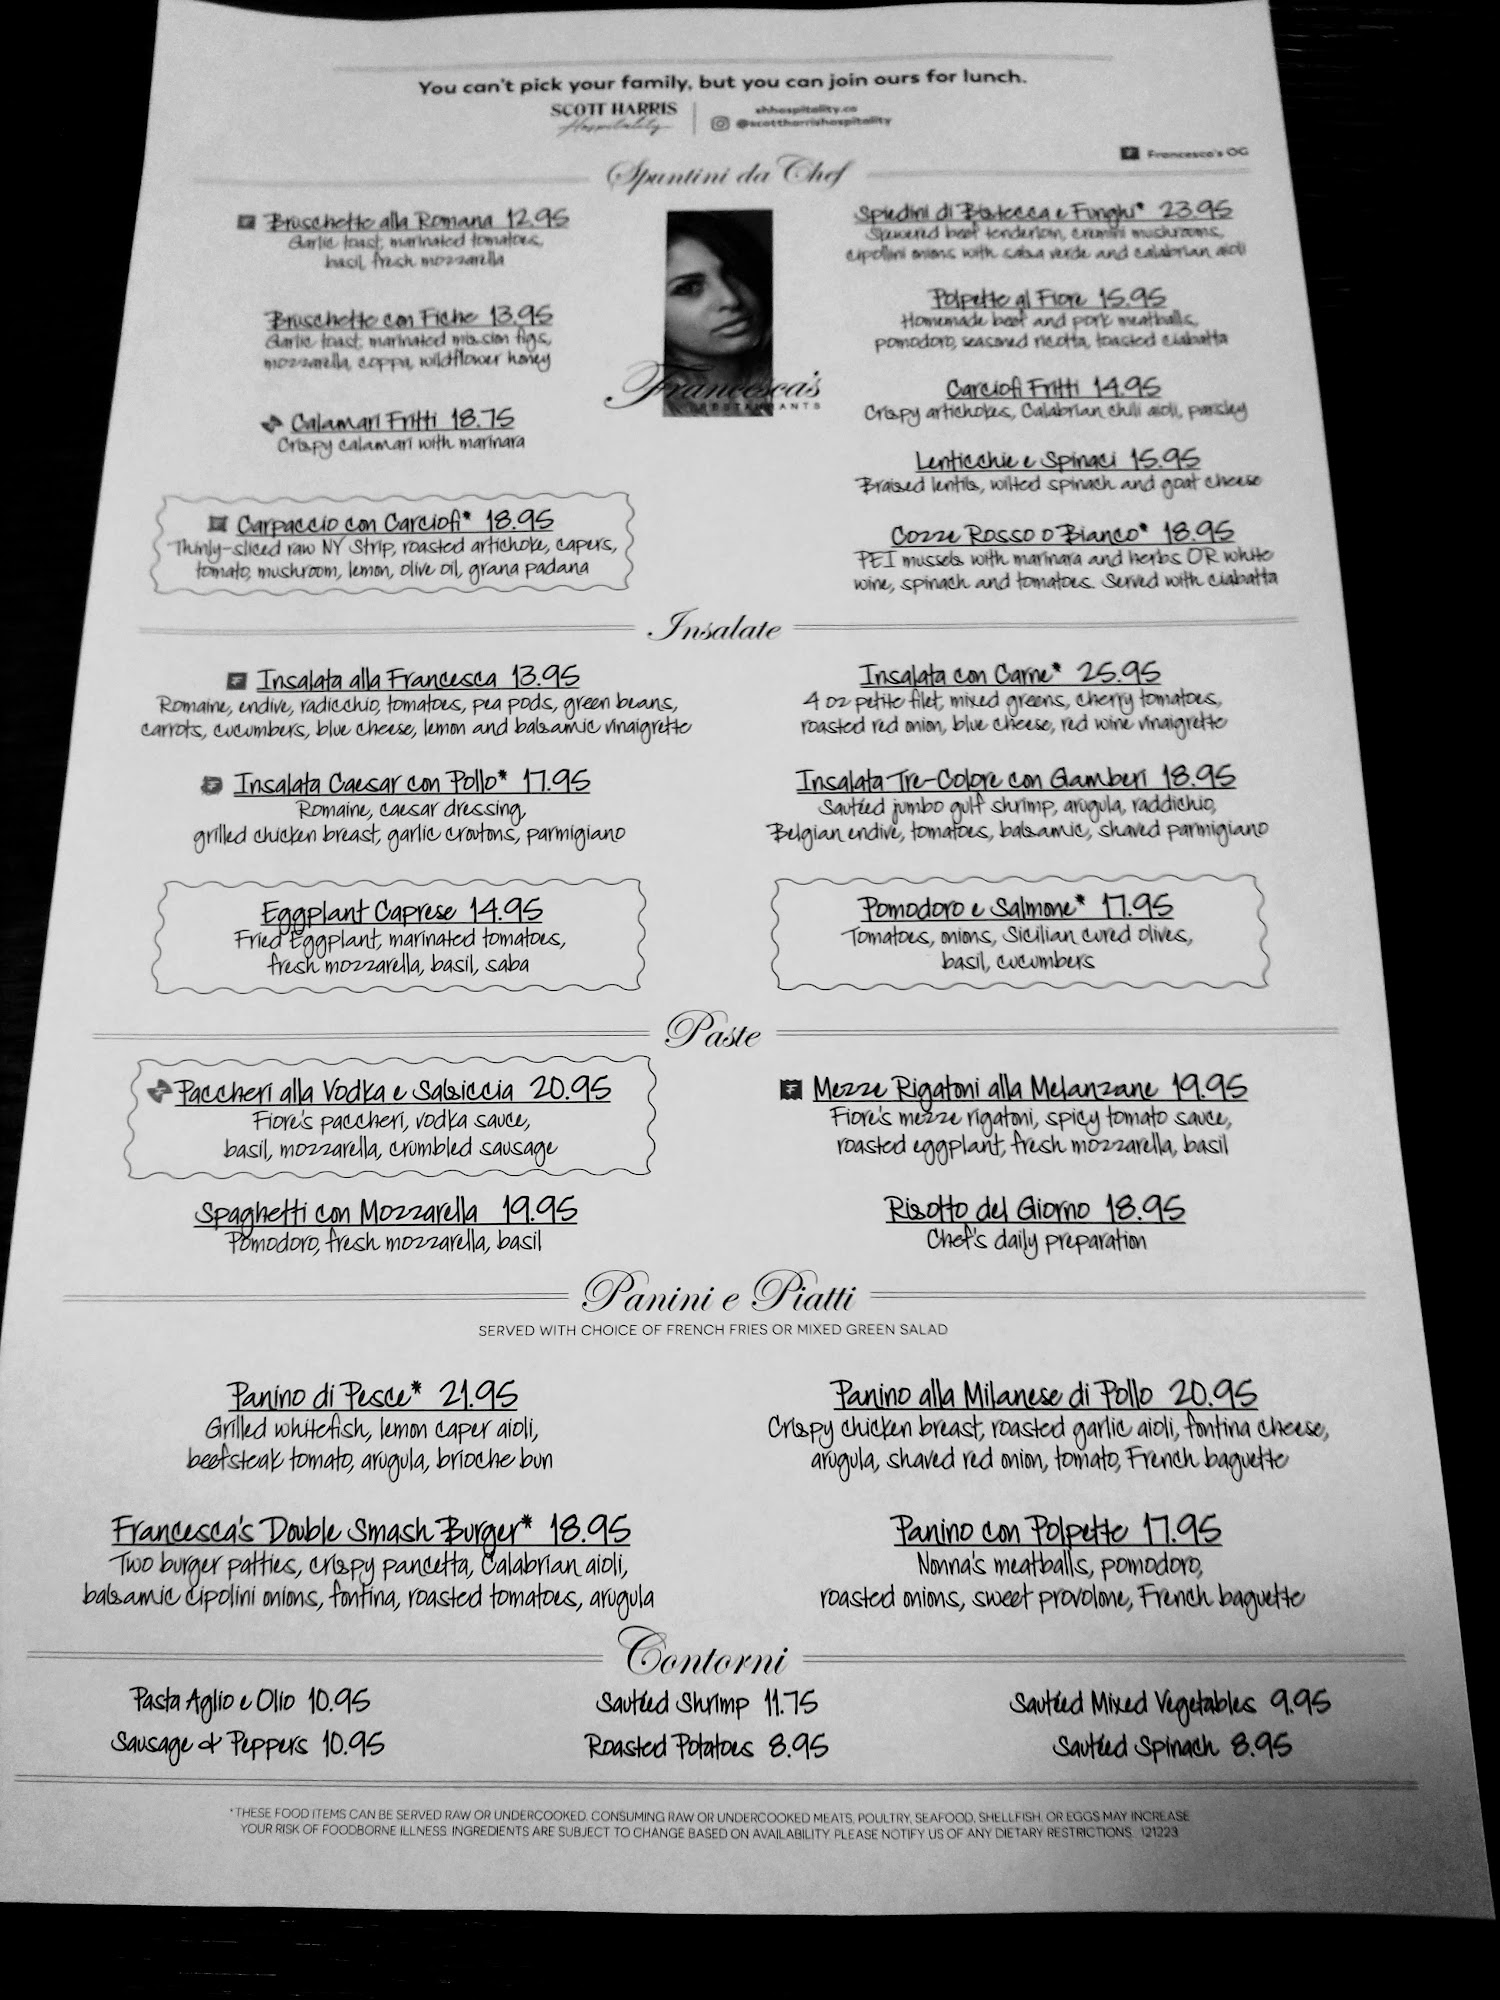 You can't pick your family, but you can join ours for lunch.
SCOTT HARRIS
Hospitality
shhospitality.co
@scottharrishospitality
Francesca's OG
Spuntini da Chef
Bruschette alla Romana 12.95
Garlic toast, marinated tomatoes,
basil, fresh mozzarella
Bruschette con Fiche 13.95
Garlic toast, marinated mission figs,
mozzarella, coppa, wildflower honey
Calamari Fritti 18.75
Crispy calamari with marinara
Carpaccio con Carciofi* 18.95
Thinly-sliced raw NY Strip, roasted artichoke, capers,
tomato, mushroom, lemon, olive oil, grana padana
Francesca's
RESTAURANTS
Spiedini di Bistecca e Funghi* 23.95
Skewered beef tenderloin, cremini mushrooms,
cipollini onions with salsa verde and calabrian aioli
Polpette al Fiore 15.95
Homemade beef and pork meatballs,
pomodoro, seasoned ricotta, toasted ciabatta
Carciofi Fritti 14.95
Crispy artichokes, Calabrian chili aioli, parsley
Lenticchie e Spinaci 15.95
Braised lentils, wilted spinach and goat cheese
Cozze Rosso o Bianco* 18.95
PEI mussels with marinara and herbs OR white
wine, spinach and tomatoes. Served with ciabatta
Insalate
Insalata alla Francesca 13.95
Romaine, endive, radicchio, tomatoes, pea pods, green beans,
carrots, cucumbers, blue cheese, lemon and balsamic vinaigrette
Insalata con Carne* 25.95
4 oz petite filet, mixed greens, cherry tomatoes,
roasted red onion, blue cheese, red wine vinaigrette
Insalata Caesar con Pollo* 17.95
Romaine, caesar dressing,
grilled chicken breast, garlic croutons, parmigiano
Insalata Tre-Colore con Gamberi 18.95
Sautéed jumbo gulf shrimp, arugula, raddichio,
Belgian endive, tomatoes, balsamic, shaved parmigiano
Eggplant Caprese 14.95
Fried Eggplant, marinated tomatoes,
fresh mozzarella, basil, saba
Pomodoro e Salmone* 17.95
Tomatoes, onions, Sicilian cured olives,
basil, cucumbers
Paste
Paccheri alla Vodka e Salsiccia 20.95
Fiore's paccheri, vodka sauce,
basil, mozzarella, crumbled sausage
Mezze Rigatoni alla Melanzane 19.95
Fiore's mezze rigatoni, spicy tomato sauce,
roasted eggplant, fresh mozzarella, basil
Spaghetti con Mozzarella 19.95
Pomodoro, fresh mozzarella, basil
Risotto del Giorno 18.95
Chef's daily preparation
Panini e Piatti
SERVED WITH CHOICE OF FRENCH FRIES OR MIXED GREEN SALAD
Panino di Pesce* 21.95
Grilled whitefish, lemon caper aioli,
beefsteak tomato, arugula, brioche bun
Panino alla Milanese di Pollo 20.95
Crispy chicken breast, roasted garlic aioli, fontina cheese,
arugula, shaved red onion, tomato, French baguette
Francesca's Double Smash Burger* 18.95
Two burger patties, crispy pancetta, Calabrian aioli,
balsamic cipolini onions, fontina, roasted tomatoes, arugula
Panino con Polpette 17.95
Nonna's meatballs, pomodoro,
roasted onions, sweet provolone, French baguette
Contorni
Pasta Aglio e Olio 10.95
Sautéed Shrimp 11.75
Sautéed Mixed Vegetables 9.95
Sausage & Peppers 10.95
Roasted Potatoes 8.95
Sautéed Spinach 8.95
*THESE FOOD ITEMS CAN BE SERVED RAW OR UNDERCOOKED. CONSUMING RAW OR UNDERCOOKED MEATS, POULTRY, SEAFOOD, SHELLFISH, OR EGGS MAY INCREASE
YOUR RISK OF FOODBORNE ILLNESS. INGREDIENTS ARE SUBJECT TO CHANGE BASED ON AVAILABILITY. PLEASE NOTIFY US OF ANY DIETARY RESTRICTIONS. 121223